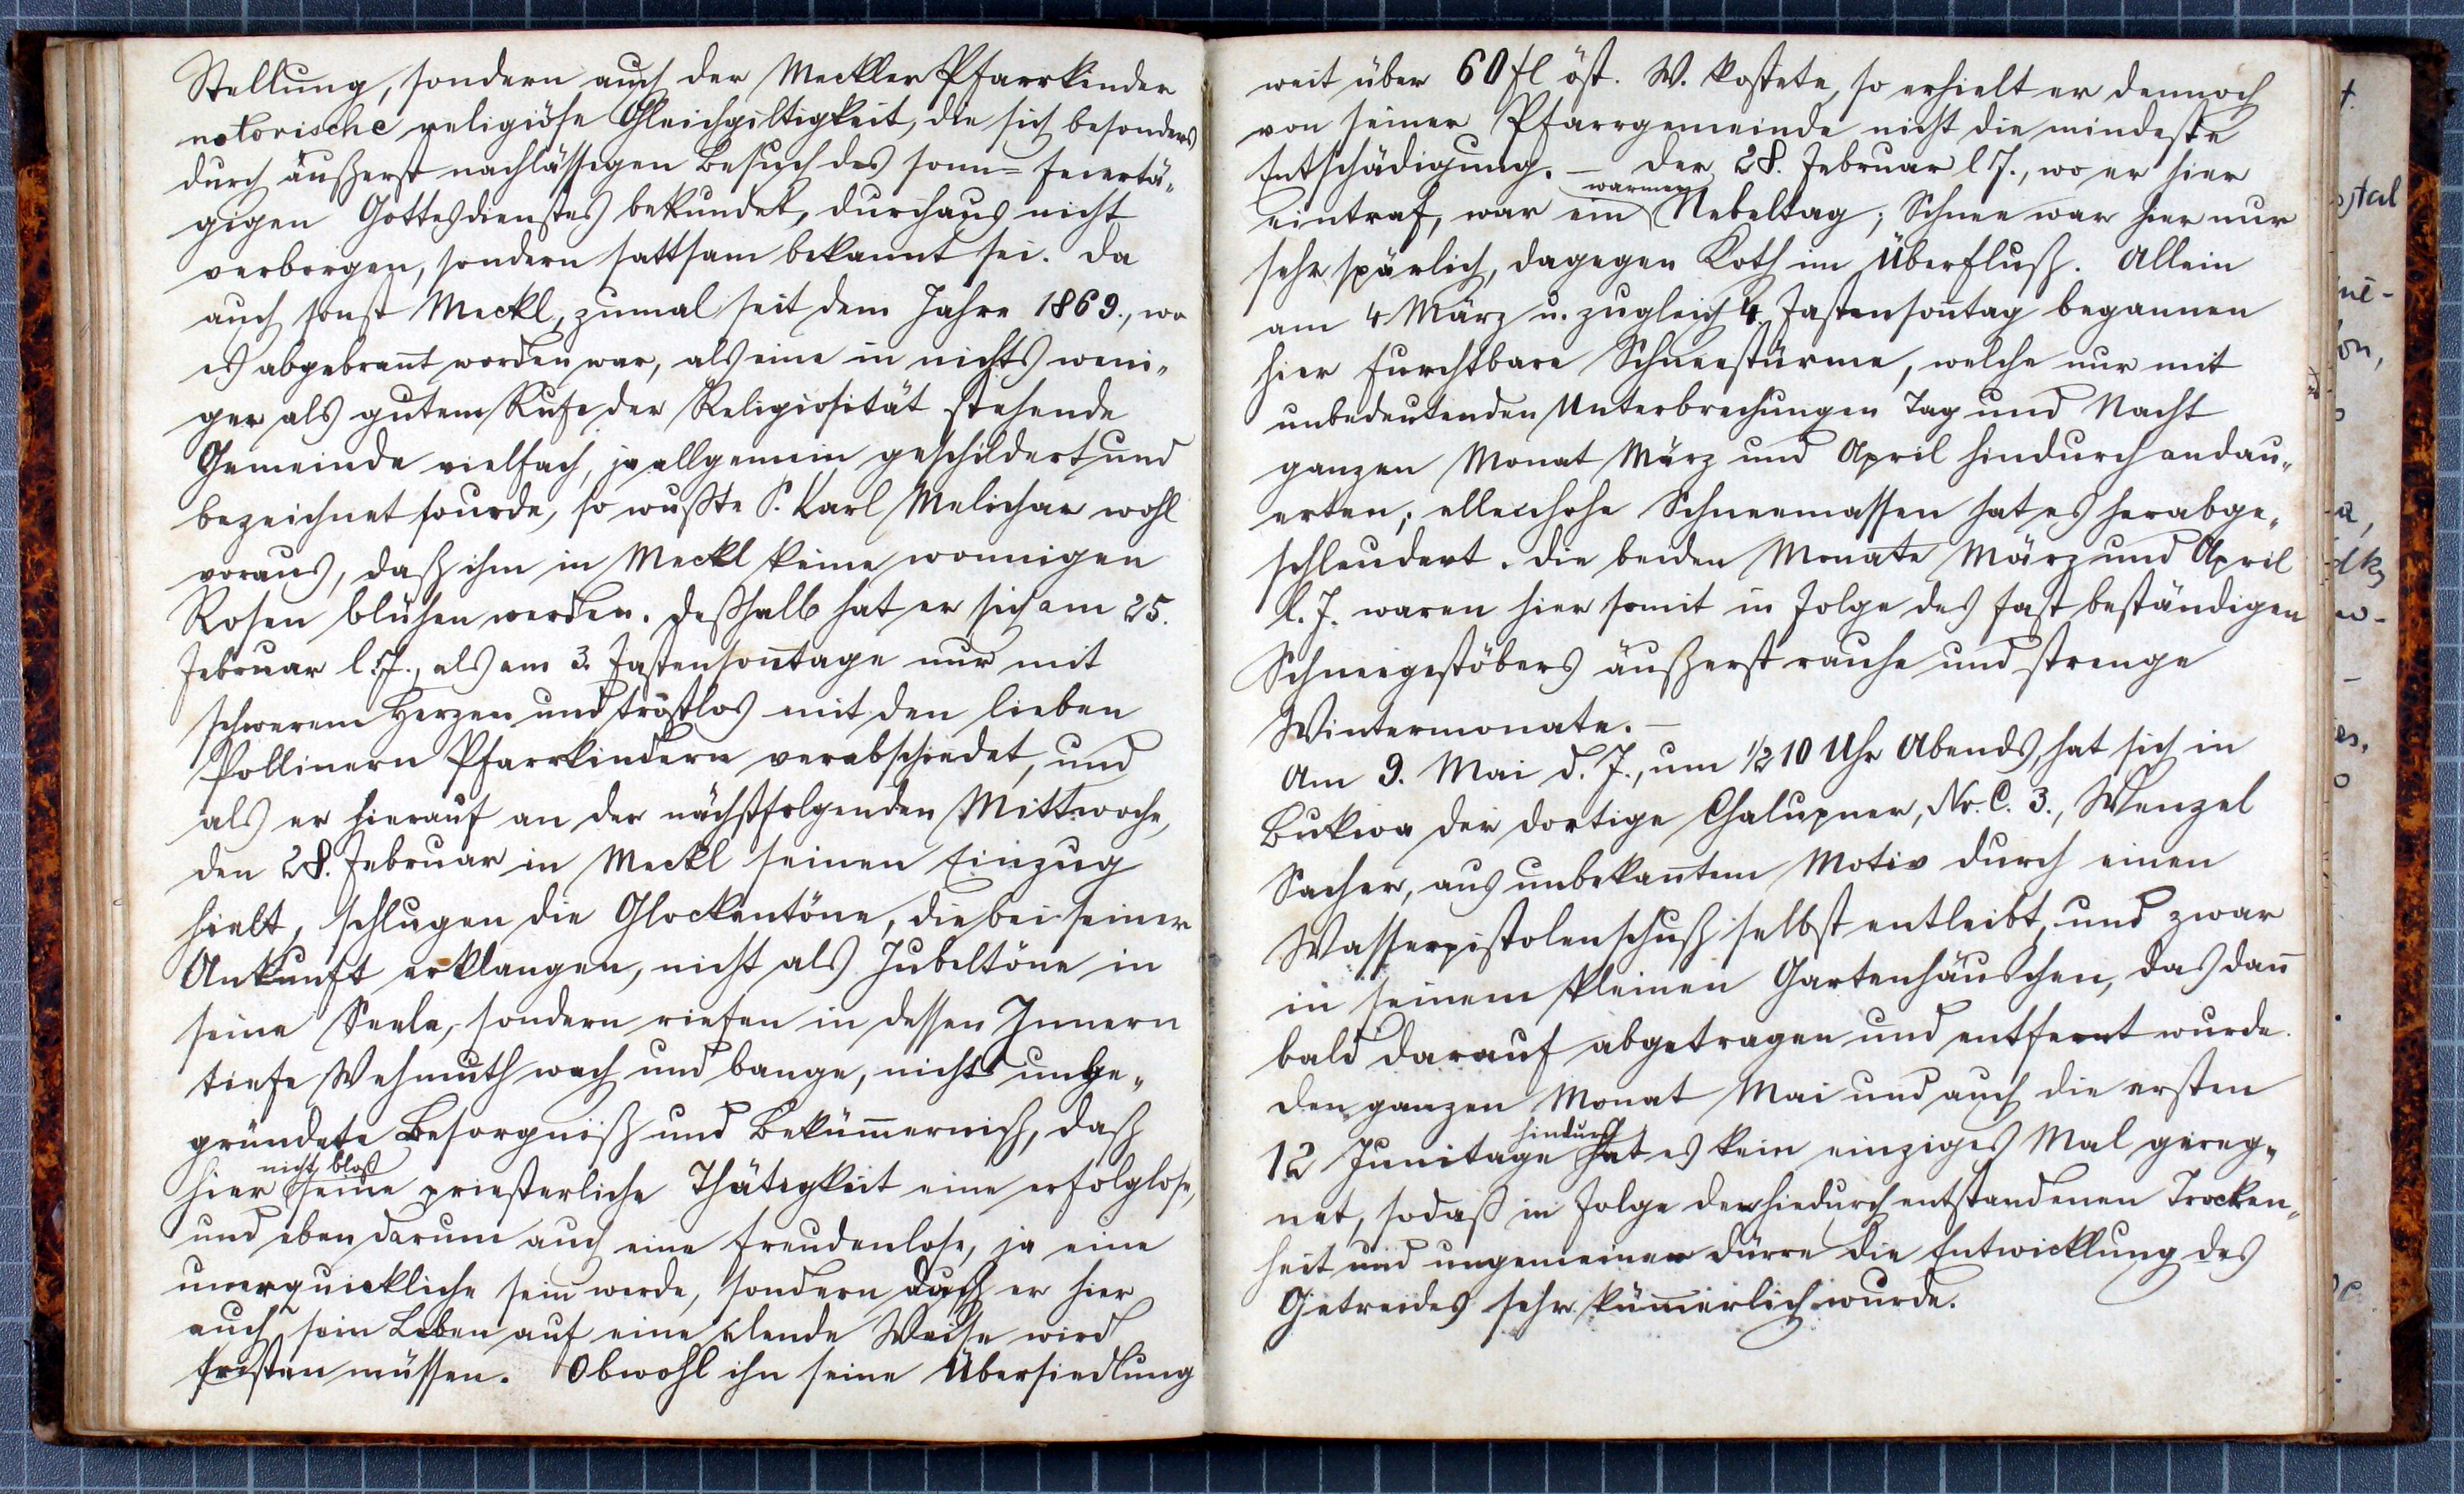 Stellung, sondern auch der Meckler Pfarrkinder
notorische religiöse Gleichgiltigkeit, die sich besonders
durch äußerst nachlässigen Besuch des sonn= feiertä„
gigen Gottesdienstes bekundet, durchaus nicht
verborgen, sondern sattsam bekannt sei. Da
auch sonst Meckl, zumal seit dem Jahre 1869., wo
es abgebrañt worden war, als eine in nichts weni„
ger als gutem Rufe der Religiosität stehende
Gemeinde vielfach, ja allgemein geschildert und
bezeichnet wurde, so wußte P. Karl Melichar wohl
voraus, daß ihm in Meckl keine wonnigen
Rosen blühen werden. Deßhalb hat er sich am 25.
Februar l. J., als am 3. Fastensoñtage nur mit
schwerem Herzen und trostlos mit den lieben
Pollinern Pfarrkindern verabschiedet, und
als er hierauf an der nächstfolgenden Mittwoche,
den 28. Februar in Meckl seinen Einzug
hielt, schlugen die Glockentöne, die bei seiner
Ankunft erklangen, nicht als Jubeltöne in
seine Seele, sondern riefen in dessen Innern
tiefe Wehmuth wach und bange, nicht unbe„
gründete Besorgniß und Beküm̄erniß, daß
nicht bloß
hier seine priesterliche Thätigkeit eine erfolglose,
und eben darum auch eine freudenlose, ja eine
unerquickliche sein werde, sondern daß er hier
auch sein Leben auf eine elende Weise wird
fristen müssen. Obwohl ihn seine Übersiedlung
weit über 60 fl öst. W. kostete, so erhielt er dennoch
von seiner Pfarrgemeinde nicht die mindeste
Entschädigung. – Der 28. Februar l. J., wo er hier
warmer
eintraf, war ein Nebeltag; Schnee war hier nur
sehr spärlich, dagegen Koth im Überfluß. Allein
am 4 März u. zugleich 4. Fastensoñtag begannen
hier furchtbare Schneestürme, welche nur mit
unbedeutenden Unterbrechungen Tag und Nacht
ganzen Monat März und April hindurch andau„
erten; ellenhohe Schneemassen hat es herabge„
schleudert. Die beiden Monate März und April
l. J. waren hier somit in Folge des fast beständigen
Schneegestöbers äußerst rauhe und strenge
Wintermonate. –
Am 9. Mai d. J., um ½ 10 Uhr Abends, hat sich in
Bukwa der dortige Chalupner, Nr. C. 3., Wenzel
Sacher, aus unbekañtem Motiv durch einen
Wasserpistolenschuß selbst entleibt, und zwar
in seinem kleinen Gartenhäuschen, das dañ
bald darauf abgetragen und entfernt wurde.
Den ganzen Monat Mai und auch die ersten
hindurch
12 Junitage hat es kein einziges Mal gereg„
net, sodaß in Folge der hiedurch entstandenen Trocken„
heit und ungemeinen Dürre die Entwicklung des
Getreides sehr küm̄erlich wurde.